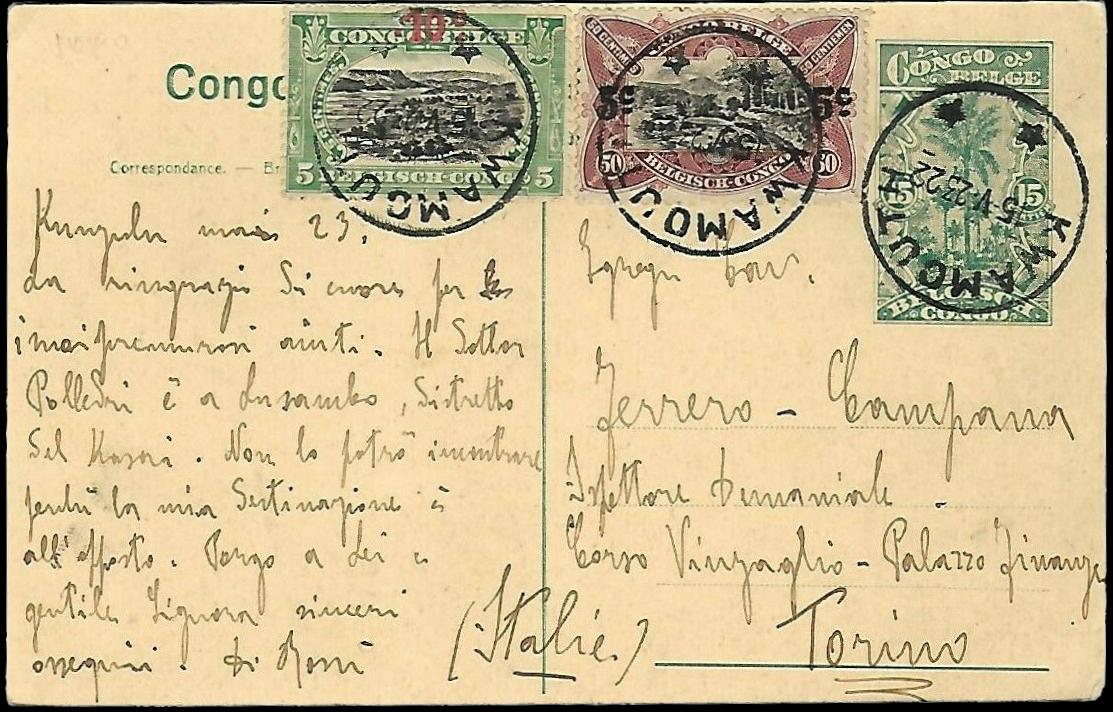 10c
CONGO BELGE
5 BELGISCH-CONGO 5
KWAMOUTH
CONGO BELGE
50 CENTIMES
50 CENTIEMEN
5c 5c
50 BELGISCH-CONGO 50
KWAMOUTH
CONGO BELGE
15 15
BELGISCH CONGO
KWAMOUTH
15-V-23-22
Congo
Correspondance. —
mars 23.
La ringrazio di cuore per
i suoi premurosi aiuti. Il Dottor
Polledri è a Lusambo, distretto
del Kasai. Non lo potrò incontrare
perché la mia destinazione è
all'opposto. Porgo a Lei e
gentile Signora sinceri
ossequi. Di Rossi
Egregio Cav.
Ferrero - Campana
Ispettore Demaniale.
Corso Vinzaglio - Palazzo Finanze
Torino
(Italie)